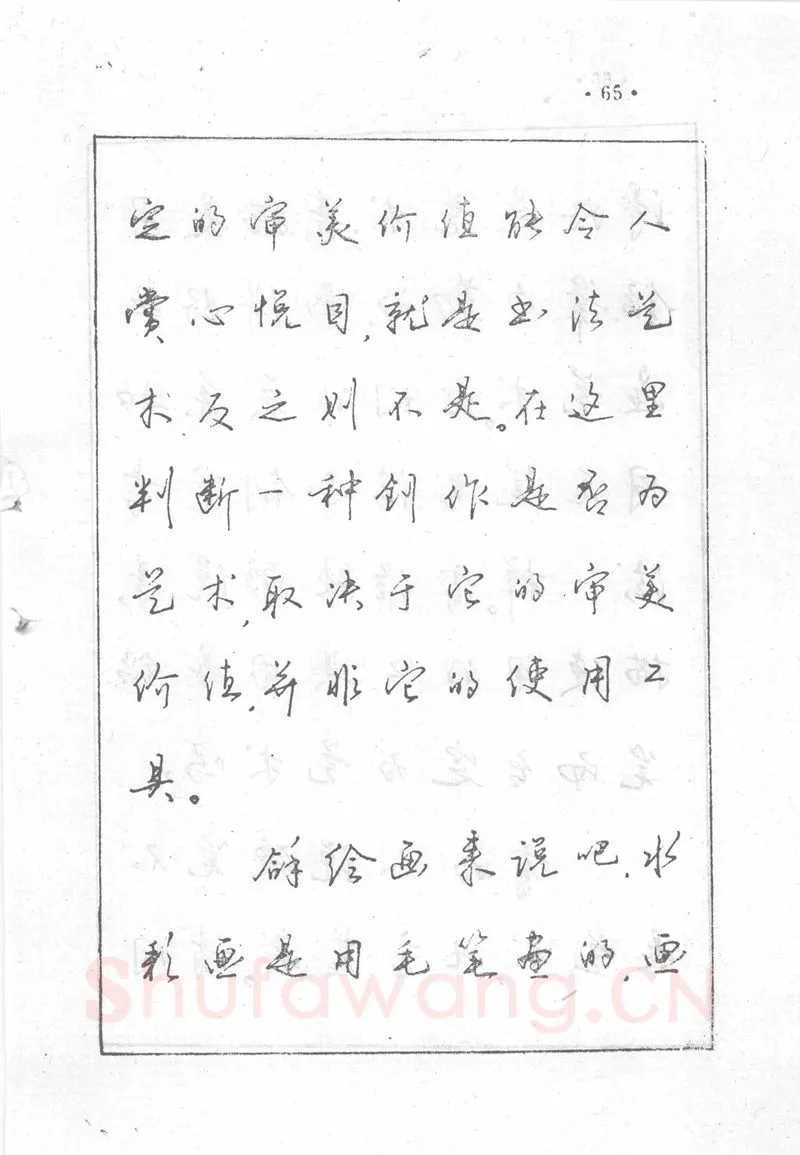 ·65·
定的审美价值能令人
赏心悦目,就是书法艺
术,反之则不是。在这里
判断一种创作是否为
艺术,取决于它的审美
价值,并非它的使用工
具。
绘画来说吧,水
彩画是用毛笔画的,画
Shufawang.CN